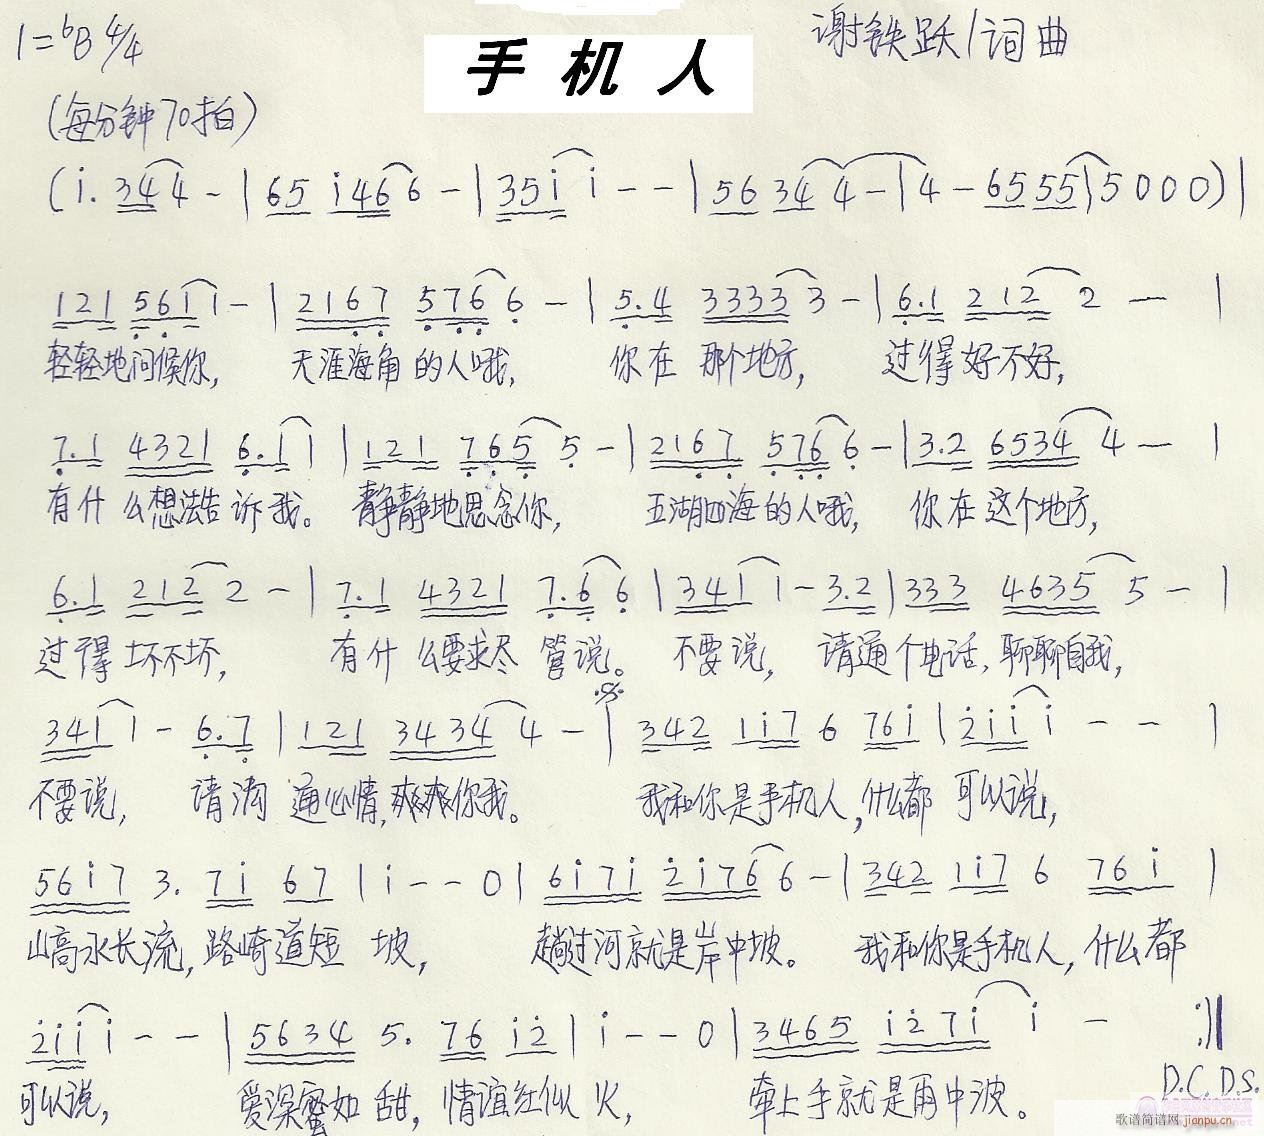 1=ᵇB 4/4
手机人
谢铁跃/词曲
(每分钟70拍)
(i. 34 4 - | 65 i46 6 - | 35i i - - | 56 34 4 - | 4 - 65 55 | 5 0 0 0) |
121 561 1 - | 2167 576 6 - | 5.4 3333 3 - | 6.1 212 2 - |
轻轻地问候你, 天涯海角的人哦, 你在那个地方, 过得好不好,
7.1 4321 6.1 1 | 121 765 5 - | 2167 576 6 - | 3.2 6534 4 - |
有什么想法告诉我。 静静地思念你, 五湖四海的人哦, 你在这个地方,
6.1 212 2 - | 7.1 4321 7.6 6 | 341 1 - 3.2 | 333 4635 5 - |
过得坏不坏, 有什么要求尽管说。 不要说, 请通个电话,聊聊自我,
341 1 - 6.7 | 121 3434 4 - | 342 1i7 6 76i | 2ii i - - |
不要说, 请沟通心情,爽爽你我。 我和你是手机人,什么都可以说,
56i7 3. 7i 67 | i - - 0 | 6i7i 2i76 6 - | 342 1i7 6 76i |
山高水长流,路崎道短坡, 趟过河就是岸中坡。 我和你是手机人,什么都
2ii i - - | 5634 5. 76 i2 | i - - 0 | 3465 i27i i - :||
可以说, 爱深蜜如甜,情谊红似火, 牵上手就是雨中波。
D.C.D.S.
歌谱简谱网 jianpu.cn